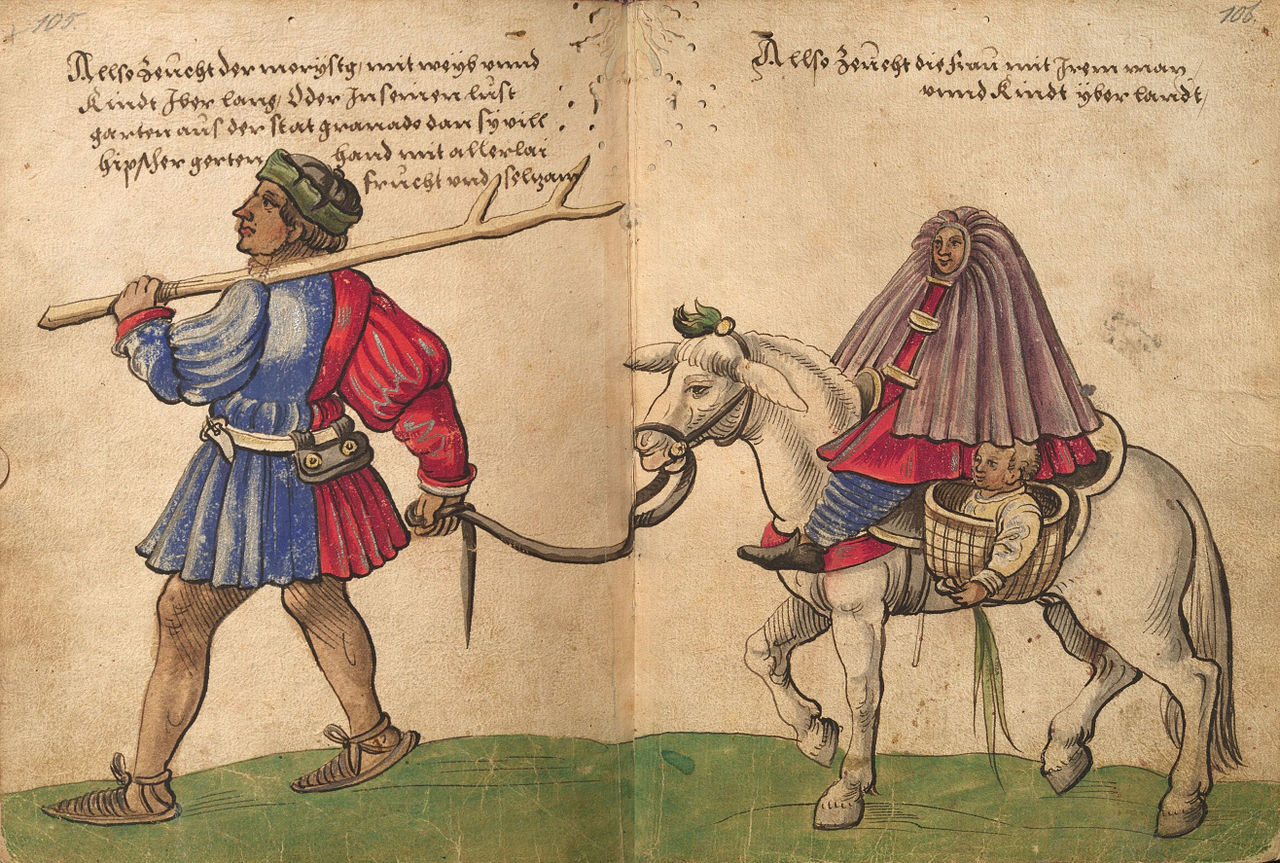 105.
Allso zeücht der morystg, mit weyb vnnd
Kindt Iber lanẞ, Oder In seinen lust
garten aus der stat granado dan sy vill
hipscher gerten hand mit allerlai
frücht vnd seltzam
106.
Allso zeücht die fraü mit Irem man
vnnd Kindt yber landt,